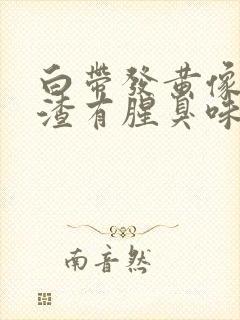 白帶發黃像
渣有腥臭味
南音然